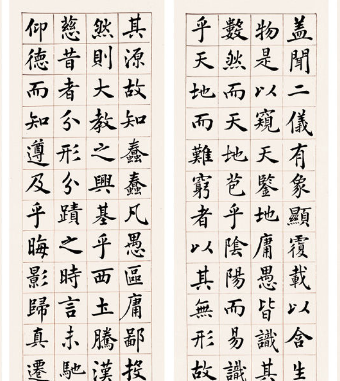 盖聞二儀有象顯覆載以含生
物是以窺天鑒地庸愚皆識其
數然而天地苞乎陰陽而易識
乎天地而難窮者以其無形故
其源故知蠢蠢凡愚區庸鄙投
然則大教之興基乎西土騰漢
慈昔者分形分蹟之時言未馳
仰德而知遵及乎晦影歸真遷